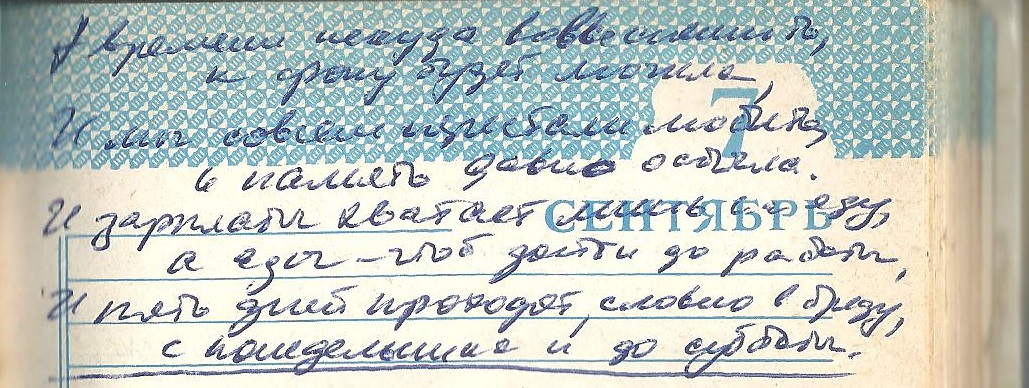 И времени некуда
и фону будет могила,
7
И мы совсем перестали любить,
и память давно остыла.
И зарплаты хватает лишь на еду,
СЕНТЯБРЬ
а еды – чтоб дойти до работы,
И пять дней проходят, словно в бреду,
с понедельника и до субботы.